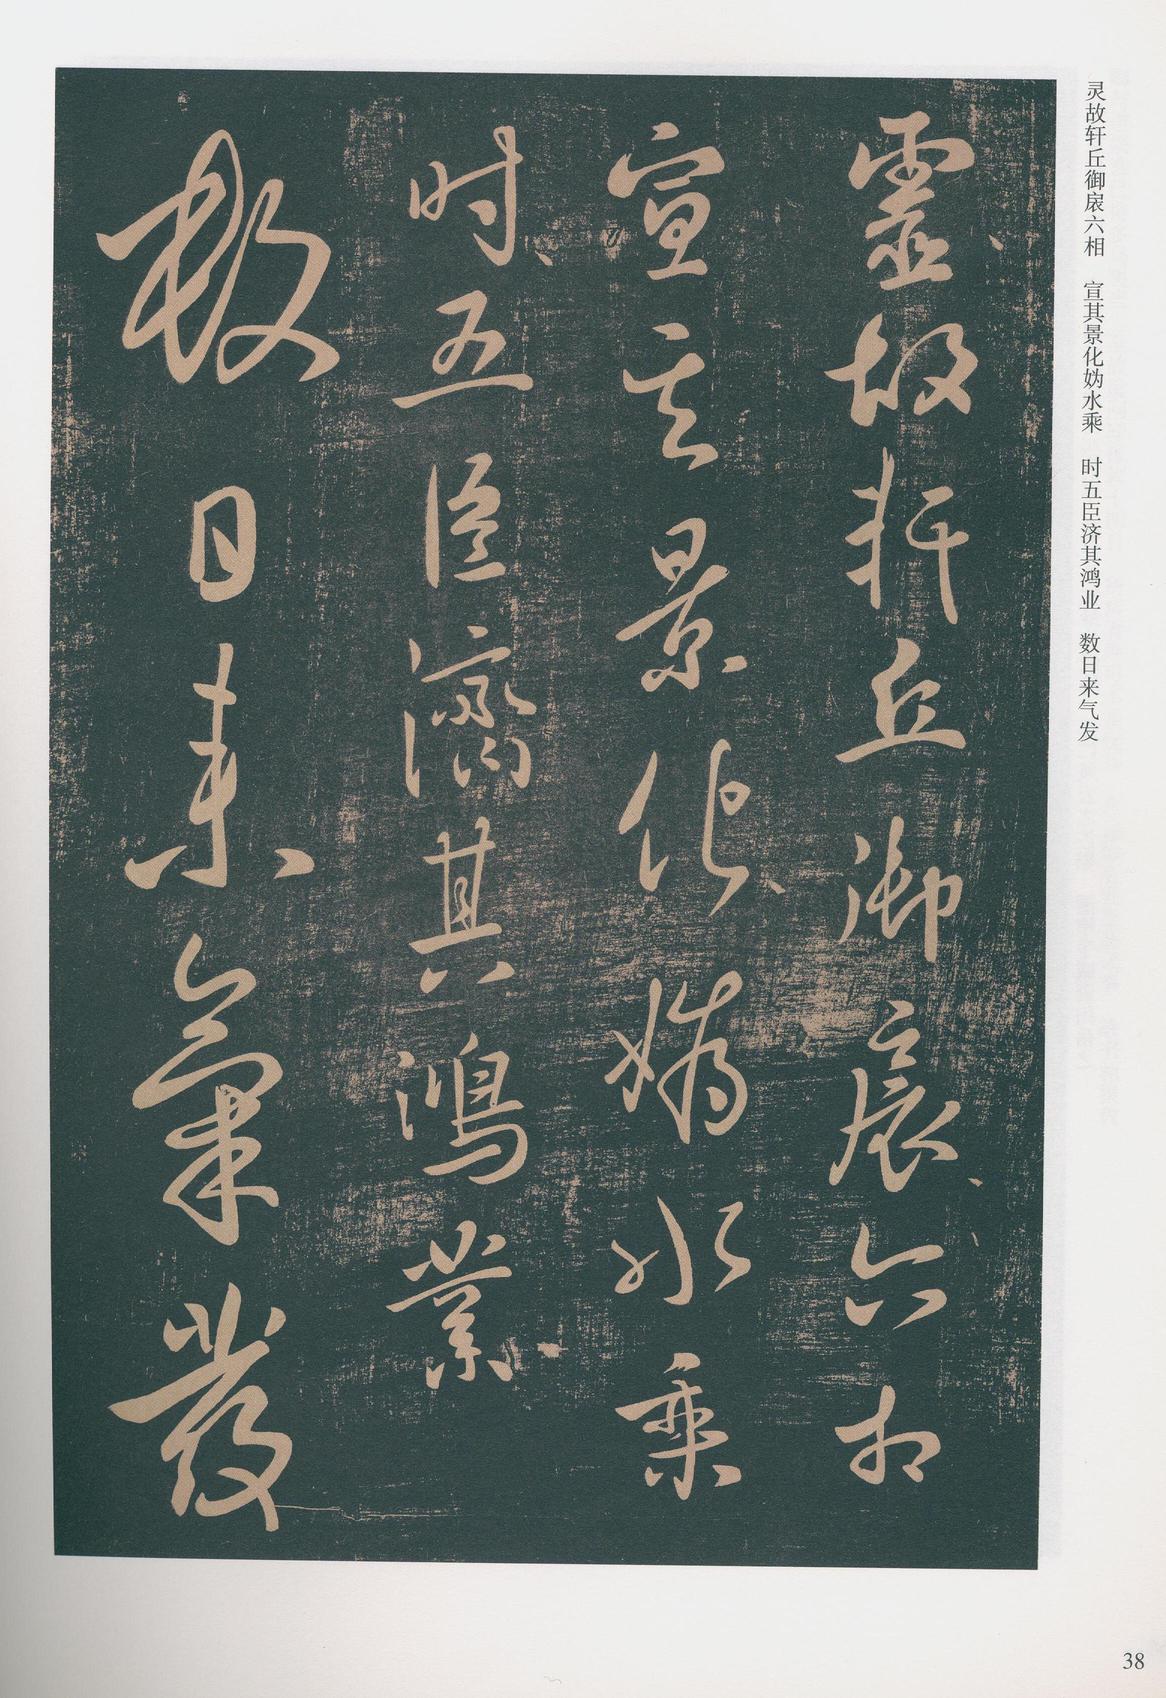 灵故轩丘御扆六相 宣其景化妫水乘 时五臣济其鸿业 数日来气发
靈故軒丘御扆六相
宣其景化媯水乘
时五臣濟其鴻業
數日来氣發
38